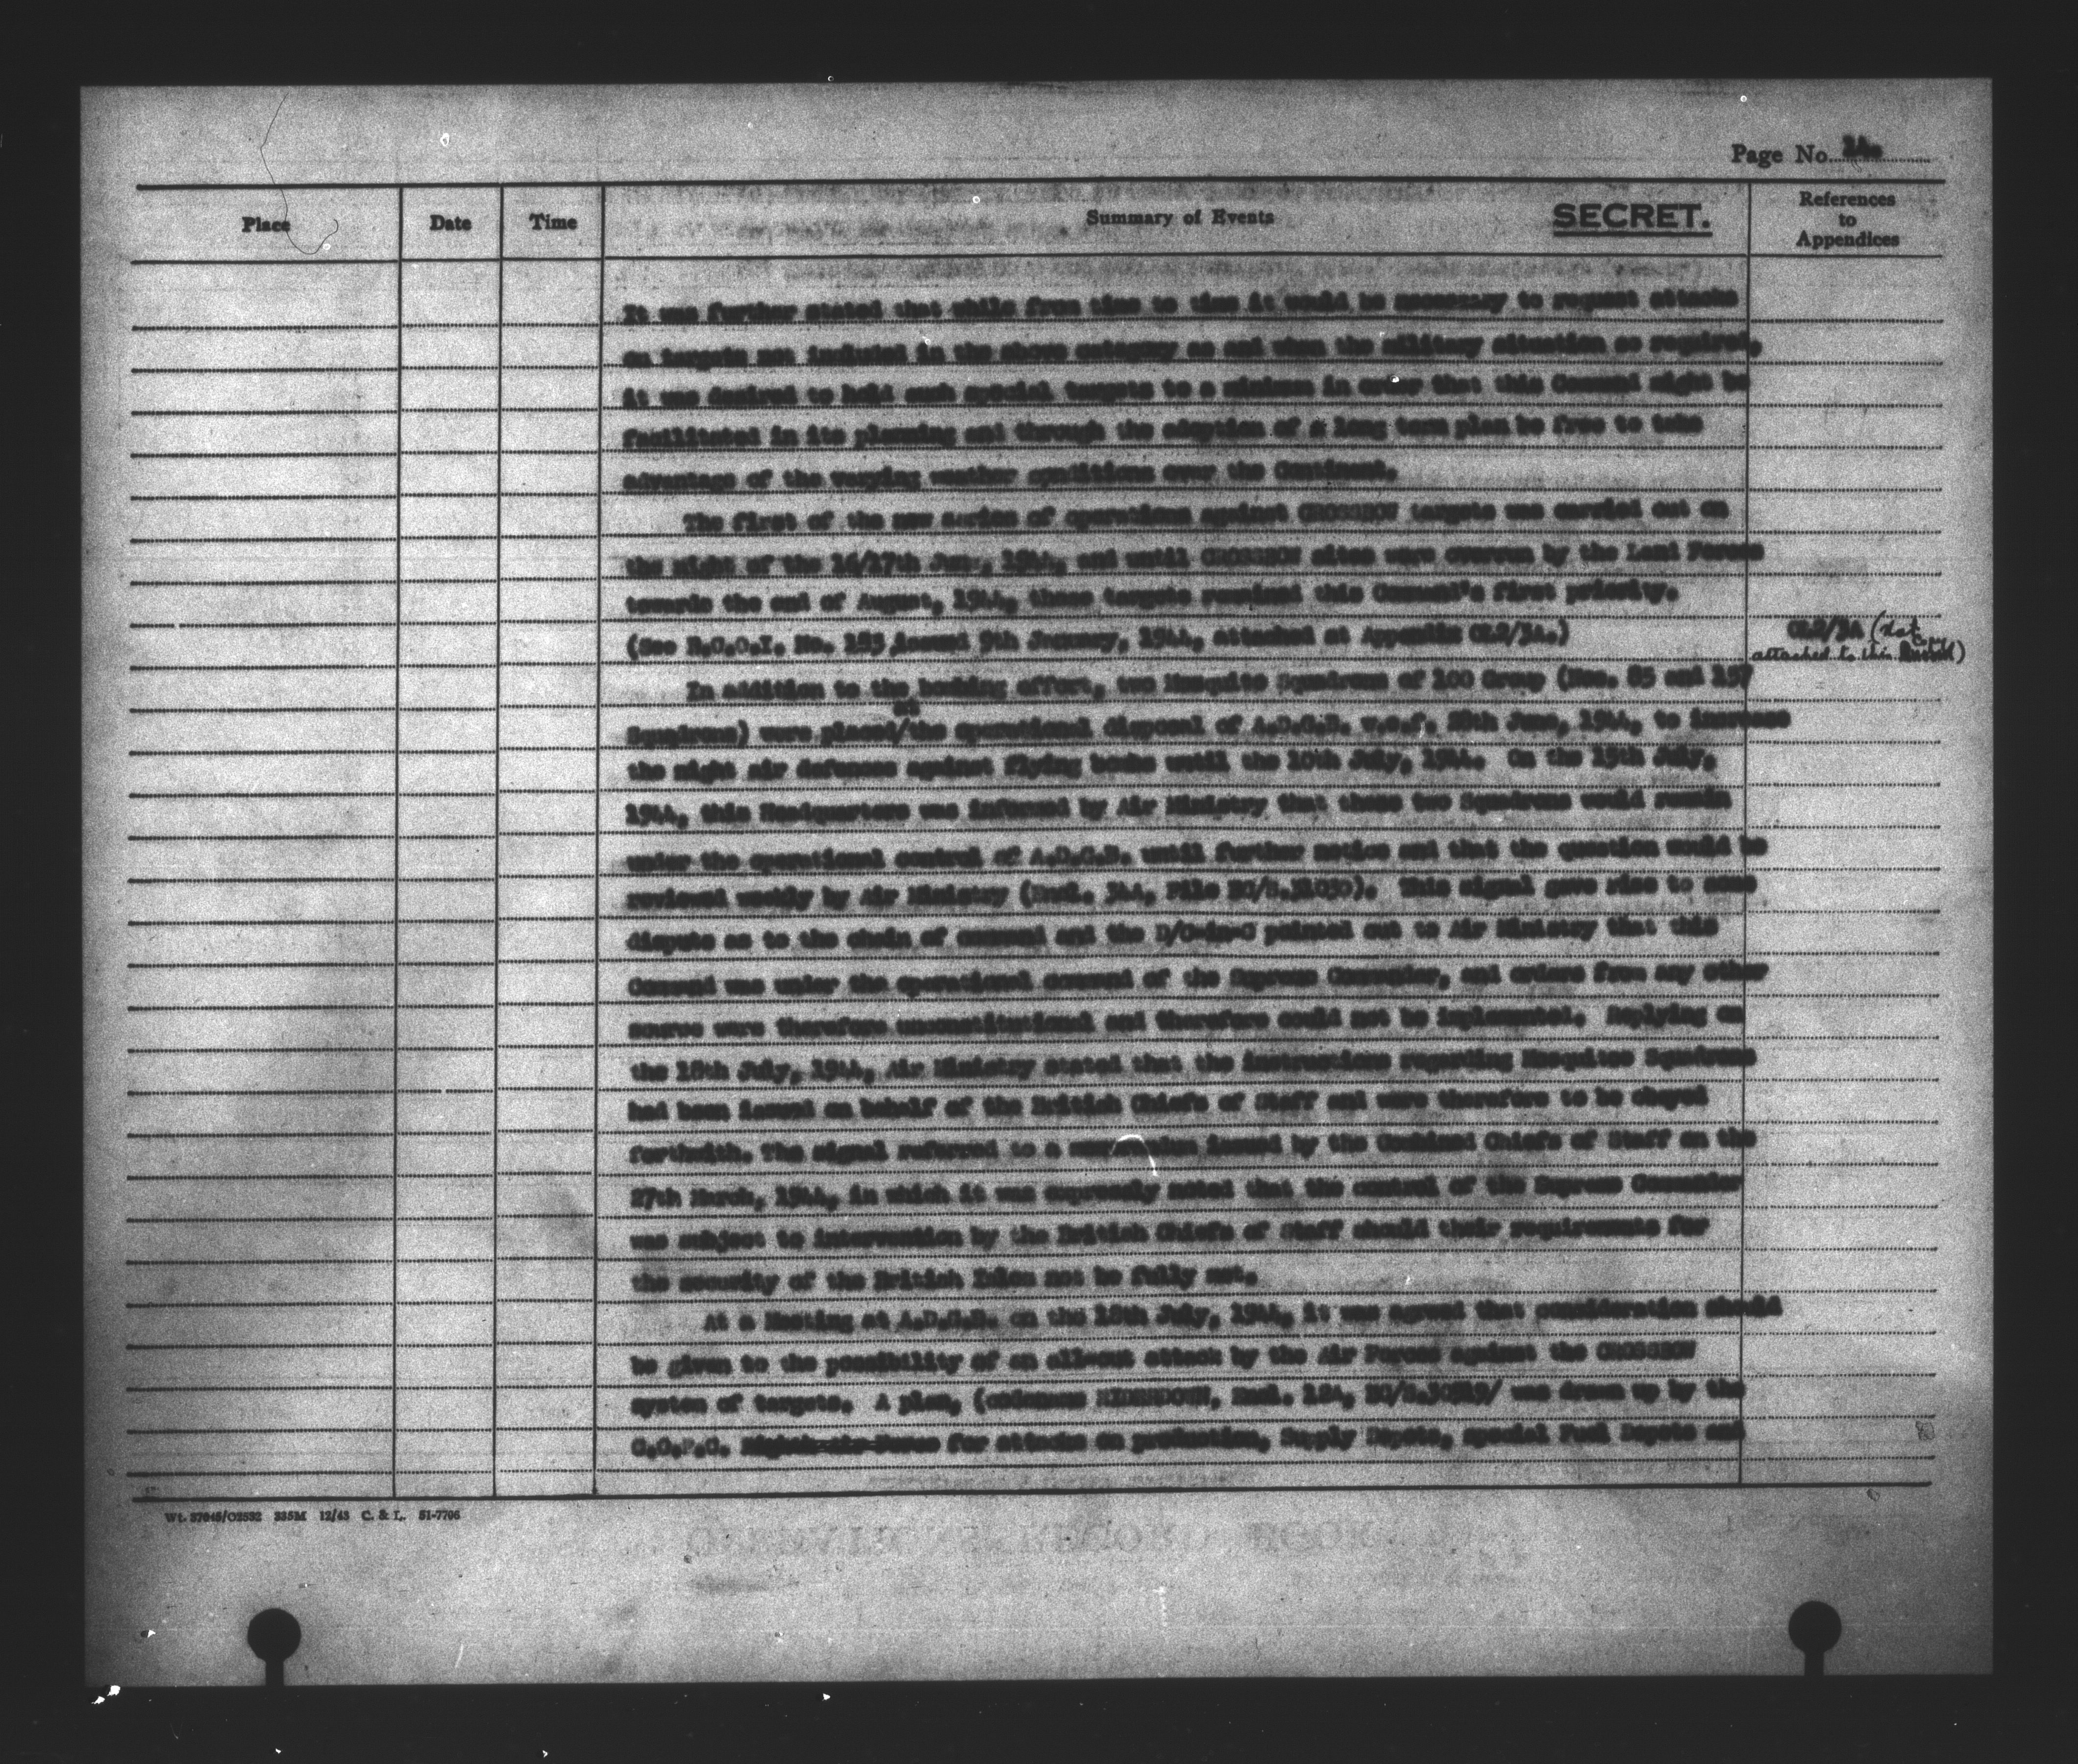 Page No. 24.
Place Date Time Summary of Events SECRET. References to Appendices
It was further stated that while from time to time it would be necessary to request attacks
on targets not included in the above category as and when the military situation so required,
it was desired to hold such special targets to a minimum in order that this Command might be
facilitated in its planning and through the adoption of a long term plan be free to take
advantage of the varying weather conditions over the Continent.
The first of the new series of operations against CROSSBOW targets was carried out on
the night of the 16/17th June, 1944, and until CROSSBOW sites were overrun by the Land Forces
towards the end of August, 1944, these targets remained this Command's first priority.
(See B.C.O.I. No. 155, issued 9th January, 1944, attached at Appendix /3A.)
/3A (Not
attached to this copy
In addition to the bombing effort, two Mosquito Squadrons of 100 Group (Nos. 85 and 157
at
Squadrons) were placed/the operational disposal of A.D.G.B. w.e.f. 28th June, 1944, to increase
the night air defences against flying bombs until the 10th July, 1944. On the 15th July,
1944, this Headquarters was informed by Air Ministry that these two Squadrons would remain
under the operational control of A.D.G.B. until further notice and that the question would be
reviewed weekly by Air Ministry (Encl. 34A, File BC/S.31030). This signal gave rise to some
dispute as to the chain of command and the D/C-in-C pointed out to Air Ministry that this
Command was under the operational command of the Supreme Commander, and orders from any other
source were therefore unconstitutional and therefore could not be implemented. Replying on
the 18th July, 1944, Air Ministry stated that the instructions regarding Mosquitos Squadrons
had been issued on behalf of the British Chiefs of Staff and were therefore to be obeyed
forthwith. The signal referred to a memorandum issued by the Combined Chiefs of Staff on the
27th March, 1944, in which it was expressly noted that the control of the Supreme Commander
was subject to intervention by the British Chiefs of Staff should their requirements for
the security of the British Isles not be fully met.
At a Meeting at A.D.G.B. on the 18th July, 1944, it was agreed that consideration should
be given to the possibility of an all-out attack by the Air Forces against the CROSSBOW
system of targets. A plan, (codename Encl. 12A, BC/S. / was drawn up by the
C.C.P.C. for attacks on production, Supply Depots, special Fuel Depots and
Wt. 37045/O2532 335M 12/43 C. & L. 51-7706